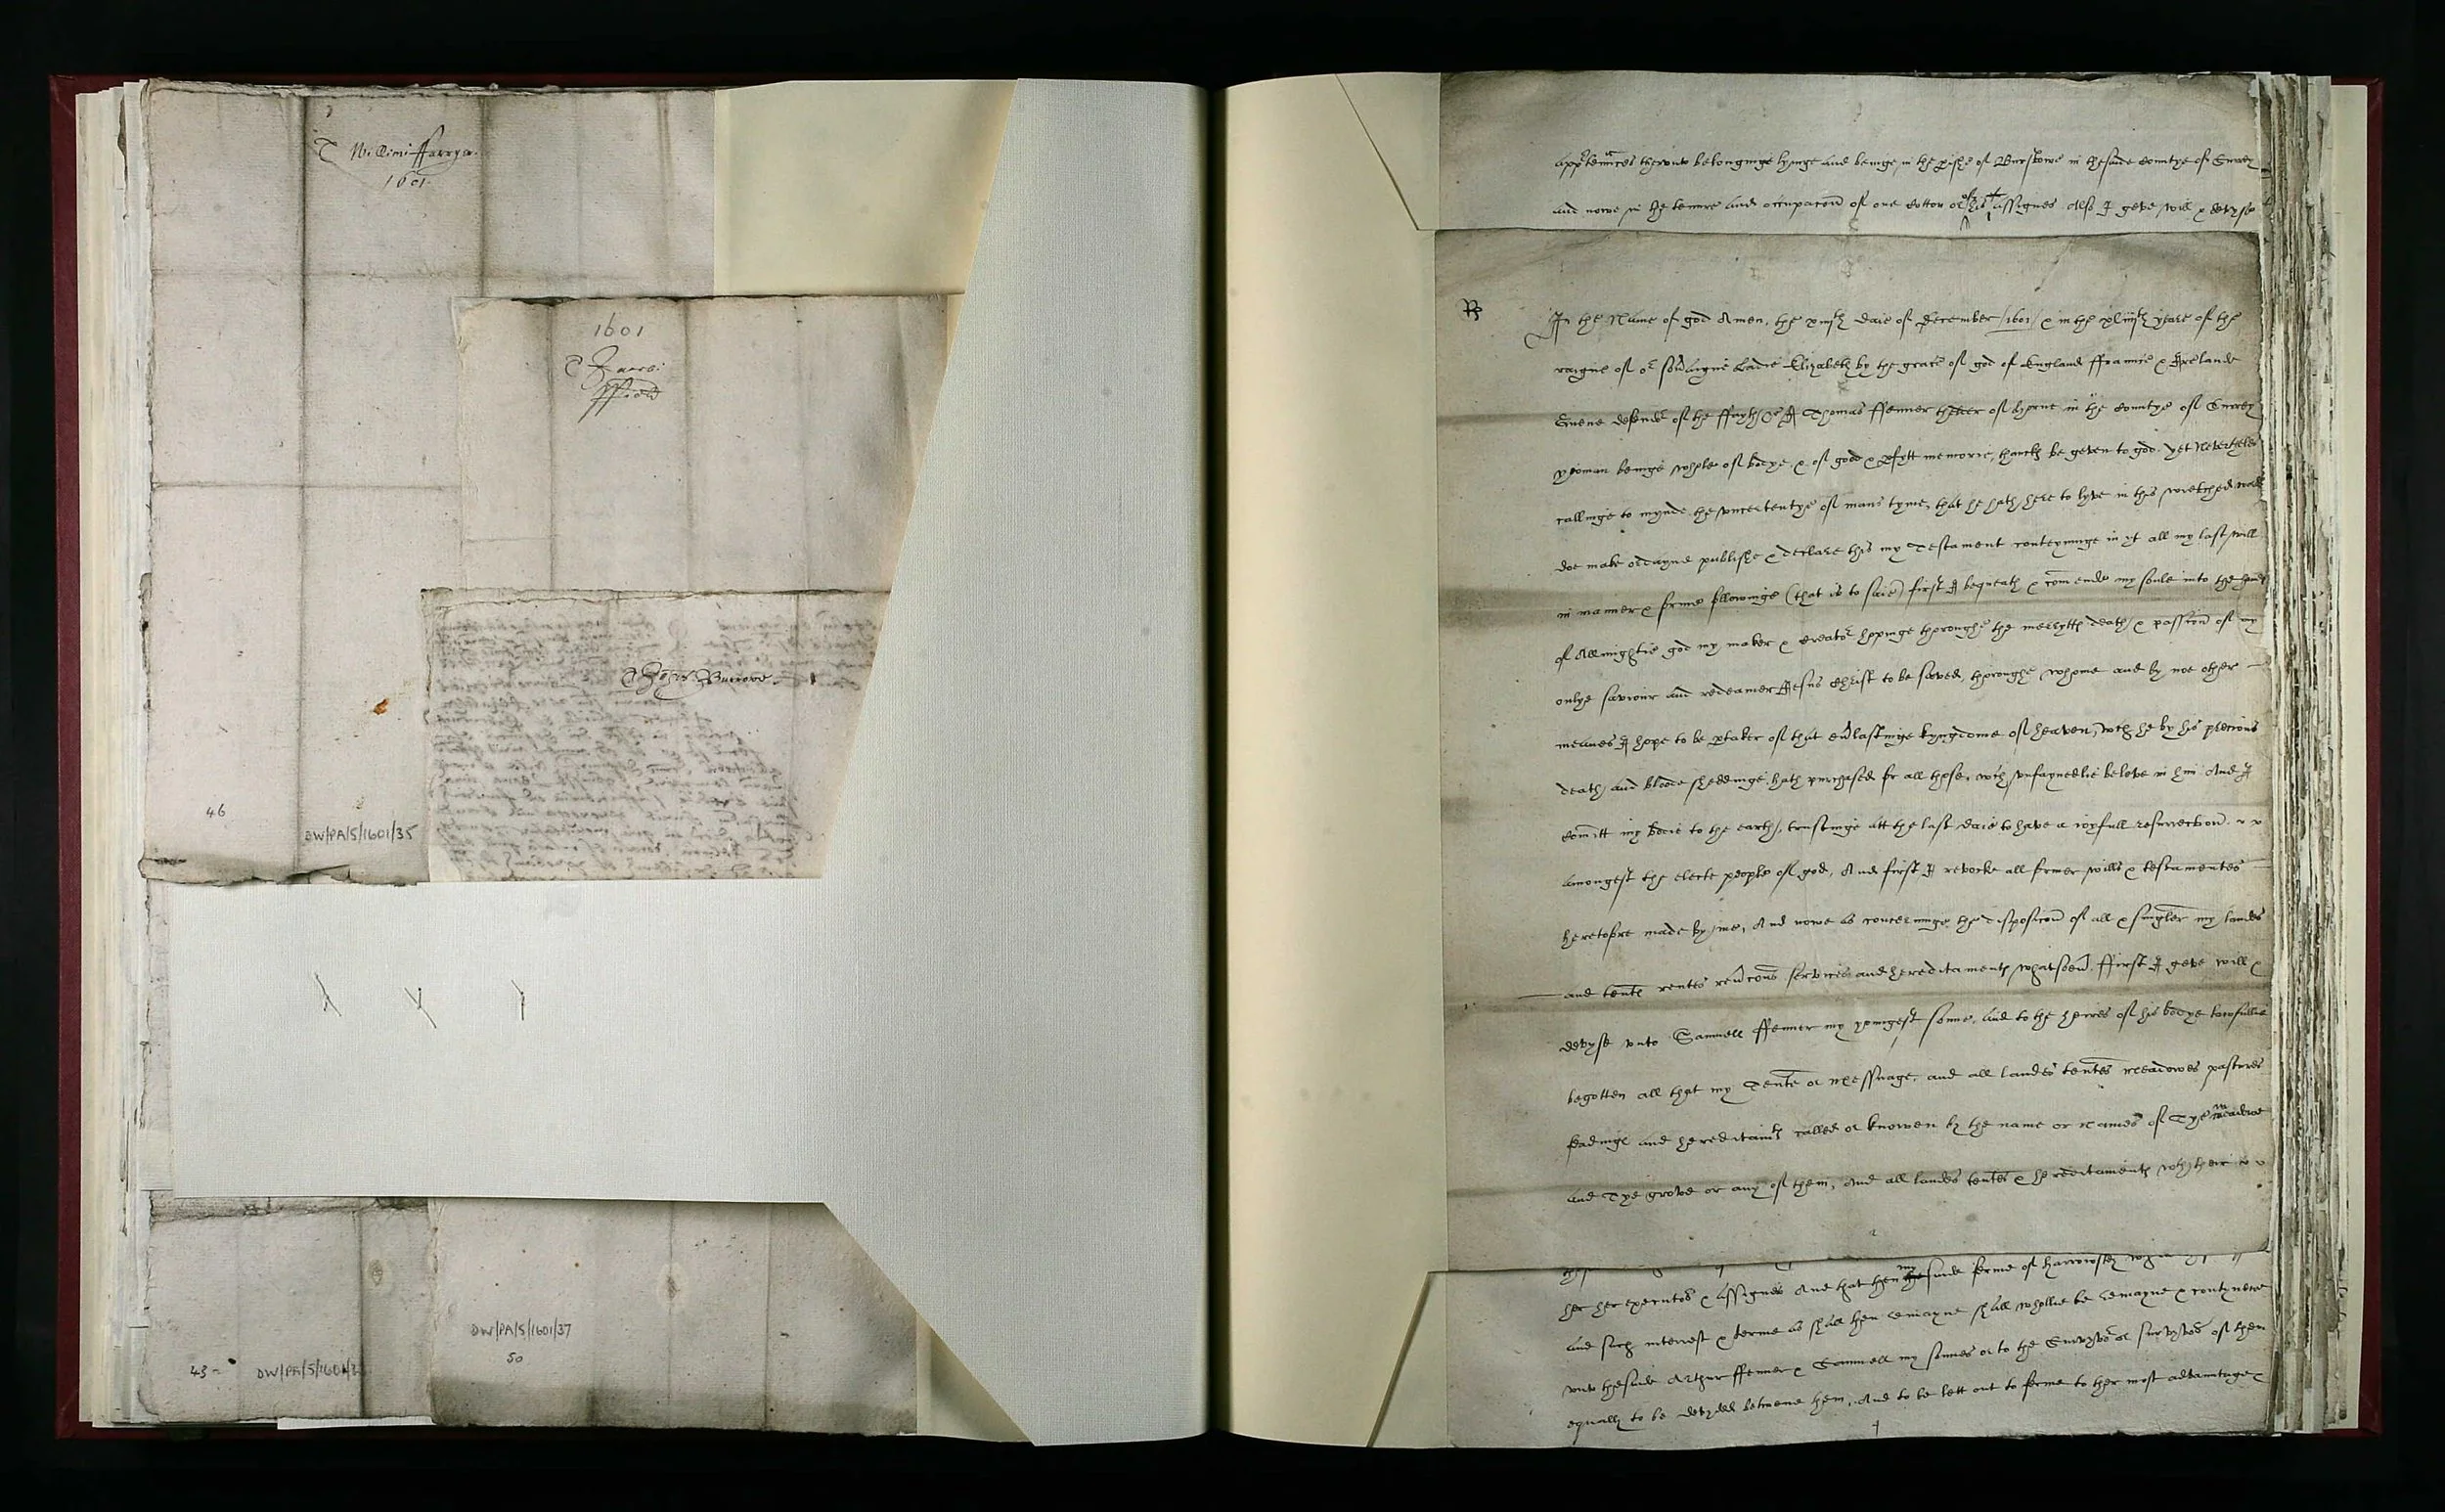 T Willimi Farrger.
1601.
1601
T Jacobi
ffield
T Johis Burrowe
46
DW/PA/5/1601/35
DW/PA/5/1601/37
50
43 -
DW/PA/5/1601/
apptennces therunto belonginge lyinge and beinge in the pishe of Burstowe in thesaide countye of Surrey
and nowe in the tenure and occupacon of one Cottor or his assignes Also I geve will & devyse
In the Name of god Amen, the xiiijth daie of December /1601/ & in the xliiijth yeare of the
raigne of or soveraigne Ladie Elizabeth by the grace of god of England ffraunce & Irelande
Quene defendr of the ffayth &c I Thomas ffenner of Horne in the countye of Surrey
yeoman beinge whole of bodye & of good & pfytt memorie, thanks be geven to god, yet Neverthelesse
callinge to mynde the uncertentye of mans tyme, that he hath here to lyve in this wretched
doe make ordayne publishe & declare this my Testament conteyninge in yt all my last will
in manner & forme followinge (that is to saie) first I bequeath & comende my soule into the hands
of Allmightie god my maker & Creator hopinge thoroughe the merytts death & passion of my
onlye saviour and redeamer Jesus Christ to be saved, thoroughe whome and by noe other
meanes I hope to be ptaker of that evlastinge kyngdome of heaven, wch he by his precious
death and bloode sheddinge hath purchased for all those, wch unfaynedlie beleve in him And I
comitt my bodie to the earth, trustinge att the last daie to have a ioyfull resurrection
amongest the electe people of god, And first I revoke all former wills & testamentes
heretofore made by me, And nowe as concerninge the disposicon of all & singler my landes
and tents rentes revcons services and hereditaments whatsoev. ffirst I geve will &
devyse unto Samuell ffenner my yongest sonne, and to the heires of his bodye lawfullie
begotten all that my Tente or Messuage, and all landes tentes meadowes pastures
feadings and hereditamts called or knowen by the name or names of Tye meadowe
and Tye grove or any of them, And all landes tentes & hereditaments wth their
her her executors & assignes And that then my saide ferme of
and such interest & terme as shall then remayne shall whollie be remayne & contynewe
unto thesaide Arthur ffenner & Samuell my sonnes or to the Survyvor or survyvors of them
equally to be devyded betweene them, And to be lett out to ferme to ther most advantage